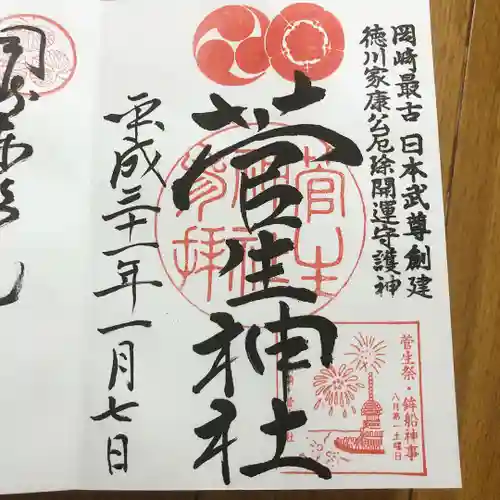 岡崎最古 日本武尊創建
徳川家康公厄除開運守護神
菅生神社
菅生神社参拝
平成三十一年一月七日
菅生祭・鉾船神事
八月第一土曜日